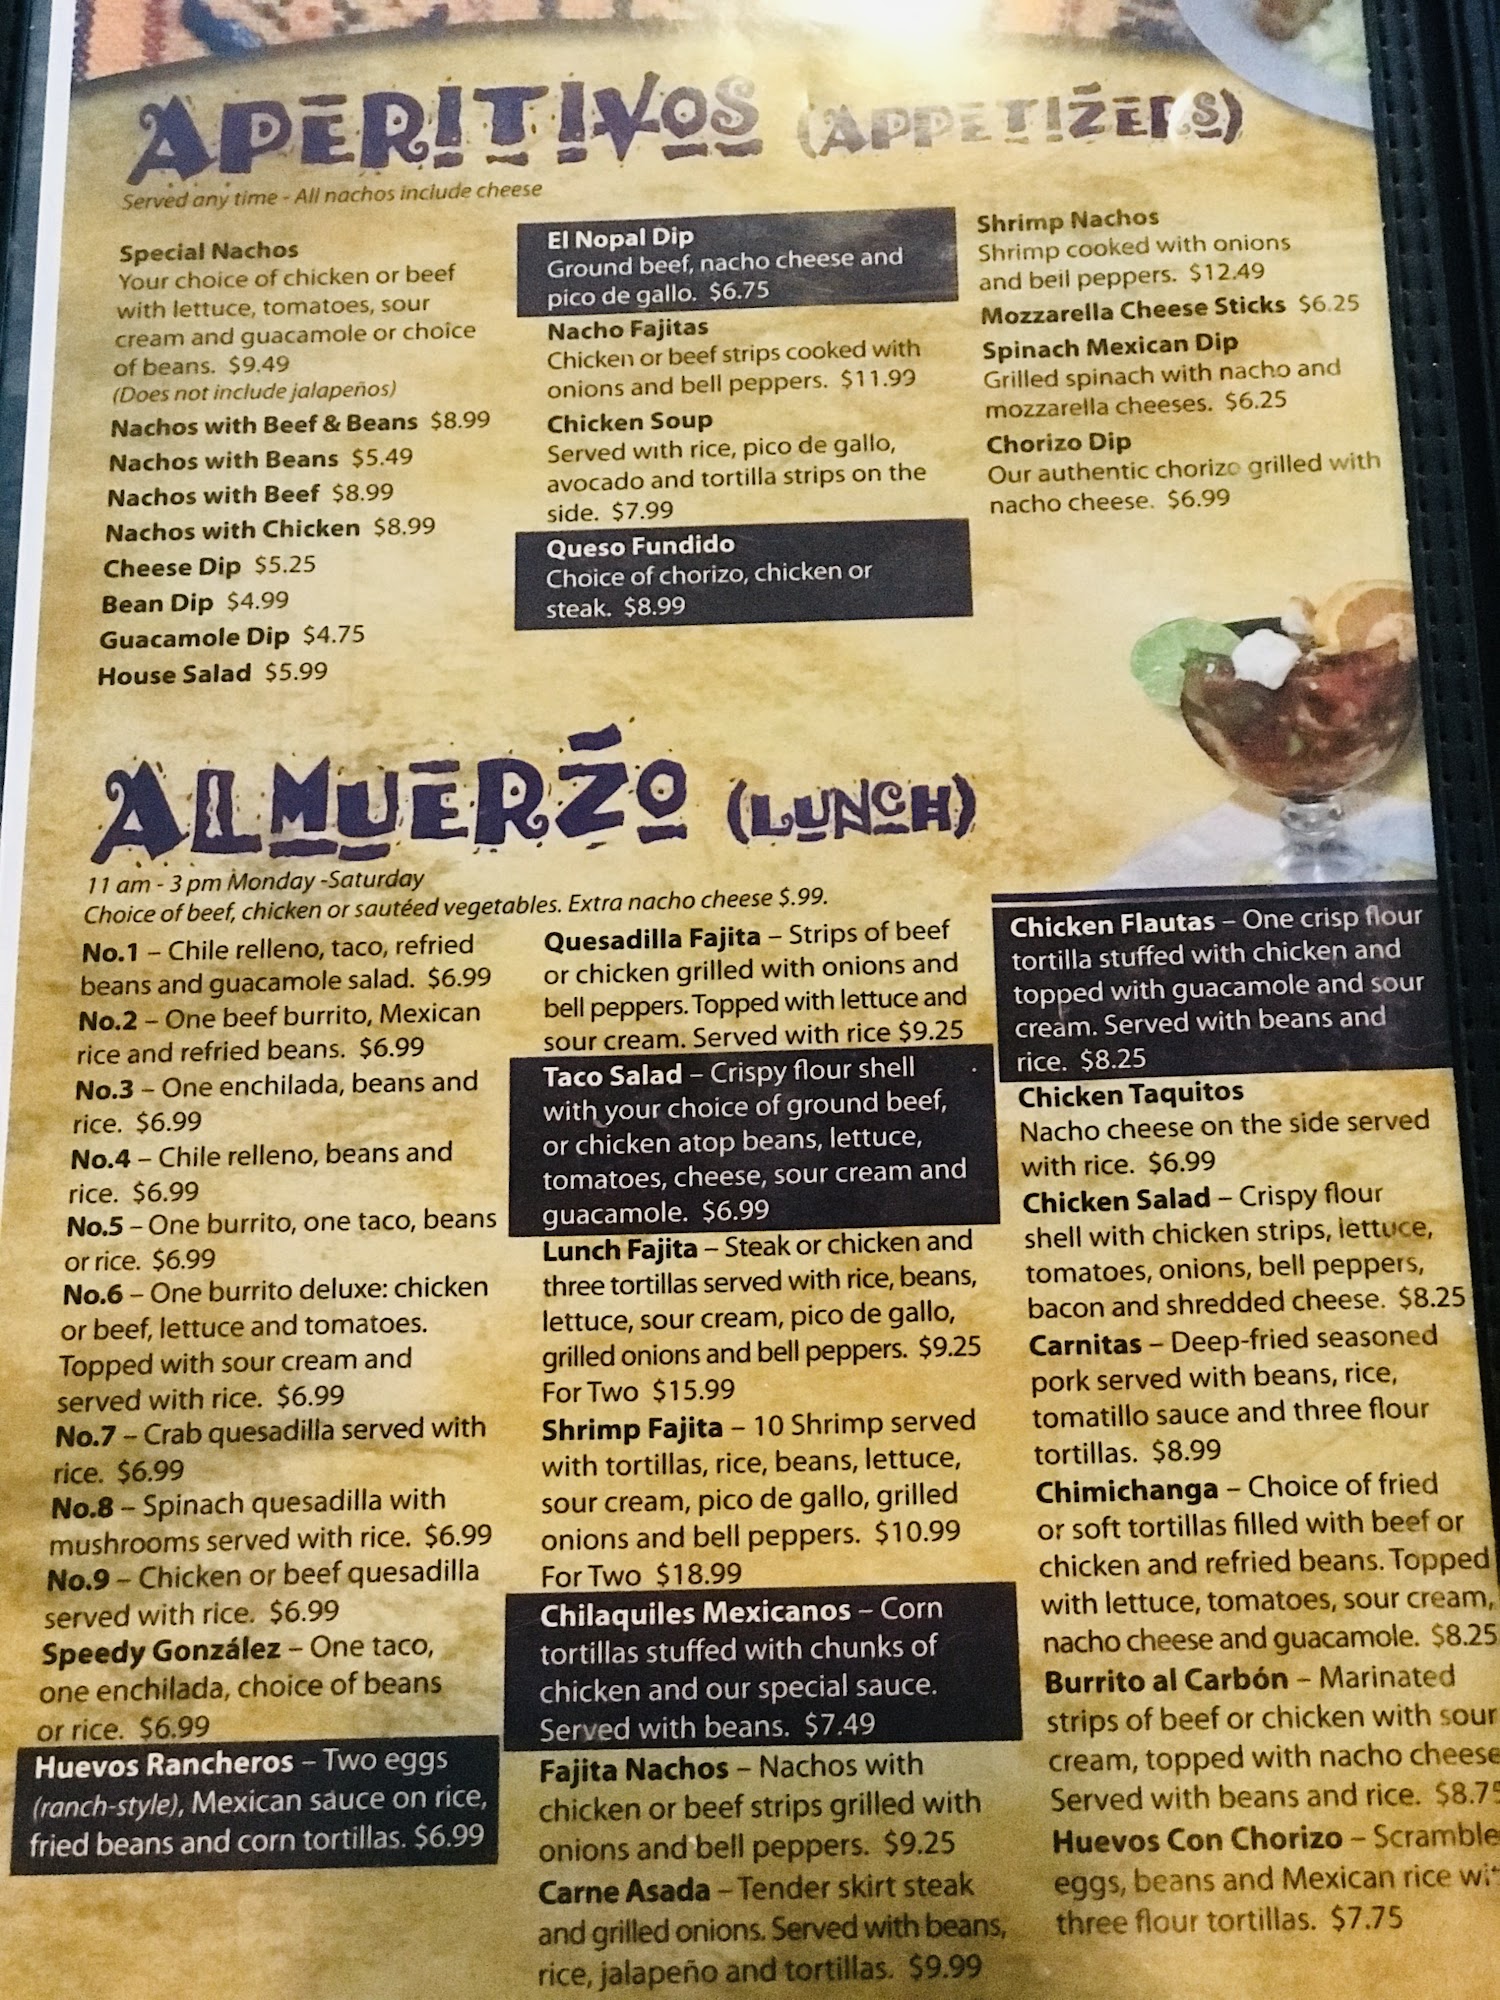 APERITIVOS (APPETIZERS)
Served any time - All nachos include cheese
Special Nachos
Your choice of chicken or beef
with lettuce, tomatoes, sour
cream and guacamole or choice
of beans. $9.49
(Does not include jalapeños)
Nachos with Beef & Beans $8.99
Nachos with Beans $5.49
Nachos with Beef $8.99
Nachos with Chicken $8.99
Cheese Dip $5.25
Bean Dip $4.99
Guacamole Dip $4.75
House Salad $5.99
El Nopal Dip
Ground beef, nacho cheese and
pico de gallo. $6.75
Nacho Fajitas
Chicken or beef strips cooked with
onions and bell peppers. $11.99
Chicken Soup
Served with rice, pico de gallo,
avocado and tortilla strips on the
side. $7.99
Queso Fundido
Choice of chorizo, chicken or
steak. $8.99
Shrimp Nachos
Shrimp cooked with onions
and bell peppers. $12.49
Mozzarella Cheese Sticks $6.25
Spinach Mexican Dip
Grilled spinach with nacho and
mozzarella cheeses. $6.25
Chorizo Dip
Our authentic chorizo grilled with
nacho cheese. $6.99
ALMUERZO (LUNCH)
11 am - 3 pm Monday -Saturday
Choice of beef, chicken or sautéed vegetables. Extra nacho cheese $.99.
No.1 – Chile relleno, taco, refried
beans and guacamole salad. $6.99
No.2 – One beef burrito, Mexican
rice and refried beans. $6.99
No.3 – One enchilada, beans and
rice. $6.99
No.4 – Chile relleno, beans and
rice. $6.99
No.5 – One burrito, one taco, beans
or rice. $6.99
No.6 – One burrito deluxe: chicken
or beef, lettuce and tomatoes.
Topped with sour cream and
served with rice. $6.99
No.7 – Crab quesadilla served with
rice. $6.99
No.8 – Spinach quesadilla with
mushrooms served with rice. $6.99
No.9 – Chicken or beef quesadilla
served with rice. $6.99
Speedy González – One taco,
one enchilada, choice of beans
or rice. $6.99
Huevos Rancheros – Two eggs
(ranch-style), Mexican sauce on rice,
fried beans and corn tortillas. $6.99
Quesadilla Fajita – Strips of beef
or chicken grilled with onions and
bell peppers. Topped with lettuce and
sour cream. Served with rice $9.25
Taco Salad – Crispy flour shell
with your choice of ground beef,
or chicken atop beans, lettuce,
tomatoes, cheese, sour cream and
guacamole. $6.99
Lunch Fajita – Steak or chicken and
three tortillas served with rice, beans,
lettuce, sour cream, pico de gallo,
grilled onions and bell peppers. $9.25
For Two $15.99
Shrimp Fajita – 10 Shrimp served
with tortillas, rice, beans, lettuce,
sour cream, pico de gallo, grilled
onions and bell peppers. $10.99
For Two $18.99
Chilaquiles Mexicanos – Corn
tortillas stuffed with chunks of
chicken and our special sauce.
Served with beans. $7.49
Fajita Nachos – Nachos with
chicken or beef strips grilled with
onions and bell peppers. $9.25
Carne Asada – Tender skirt steak
and grilled onions. Served with beans,
rice, jalapeño and tortillas. $9.99
Chicken Flautas – One crisp flour
tortilla stuffed with chicken and
topped with guacamole and sour
cream. Served with beans and
rice. $8.25
Chicken Taquitos
Nacho cheese on the side served
with rice. $6.99
Chicken Salad – Crispy flour
shell with chicken strips, lettuce,
tomatoes, onions, bell peppers,
bacon and shredded cheese. $8.25
Carnitas – Deep-fried seasoned
pork served with beans, rice,
tomatillo sauce and three flour
tortillas. $8.99
Chimichanga – Choice of fried
or soft tortillas filled with beef or
chicken and refried beans. Topped
with lettuce, tomatoes, sour cream,
nacho cheese and guacamole. $8.25
Burrito al Carbón – Marinated
strips of beef or chicken with sour
cream, topped with nacho cheese
Served with beans and rice. $8.75
Huevos Con Chorizo – Scramble
eggs, beans and Mexican rice wi
three flour tortillas. $7.75